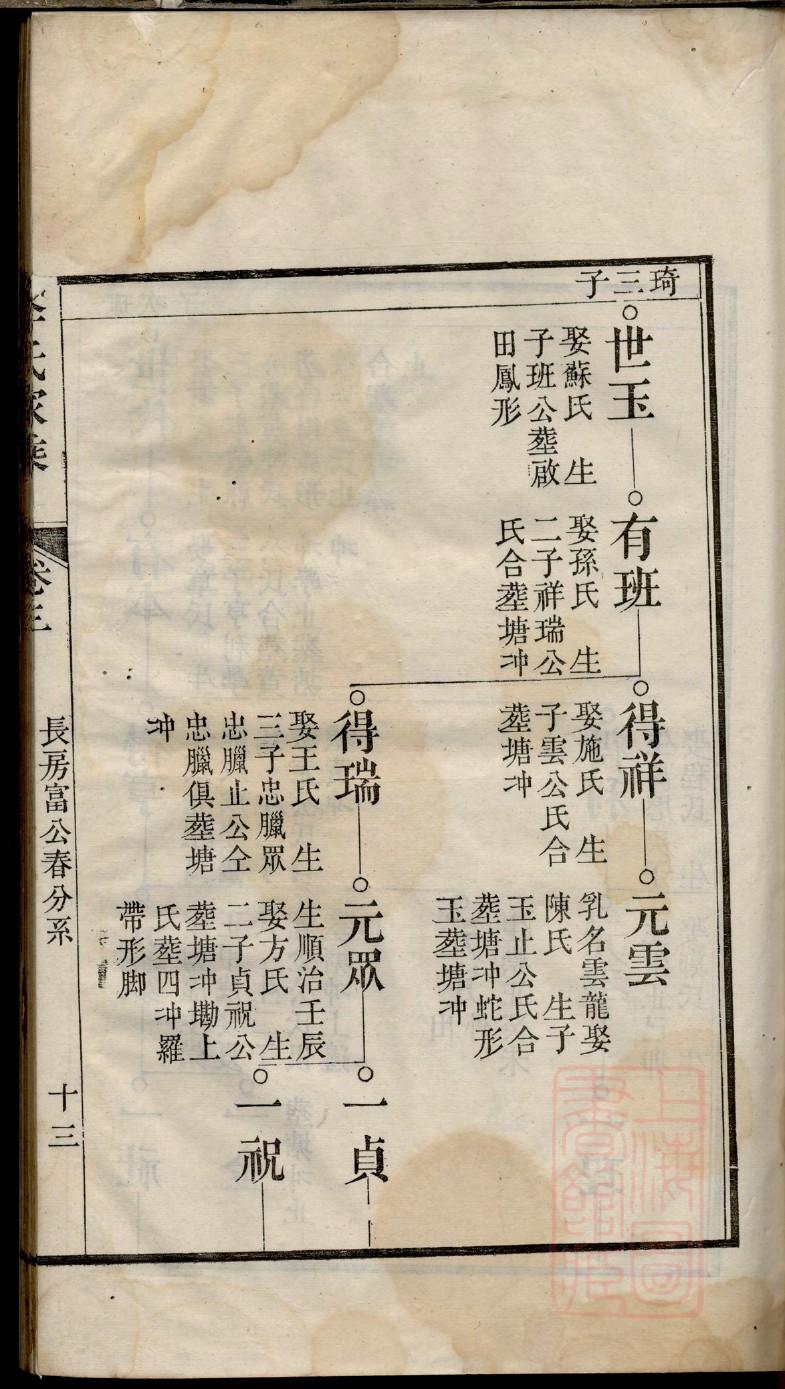 琦三子
世玉
娶蘇氏 生
子班公塟啟
田鳳形
有班
娶孫氏 生
二子祥瑞公
氏合塟塘冲
得祥
娶施氏 生
子雲公氏合
塟塘冲
元雲
乳名雲龍娶
陳氏 生子
玉止公氏合
塟塘冲蛇形
玉塟塘冲
得瑞
娶王氏 生
三子忠臘眾
忠臘止公仝
忠臘俱塟塘
冲
元眾
生順治壬辰
娶方氏 生
二子貞祝公
塟塘冲墈上
氏塟四冲羅
帶形脚
一貞
一祝
李氏家乘
卷三
長房富公春分系
十三
上海圖書館藏